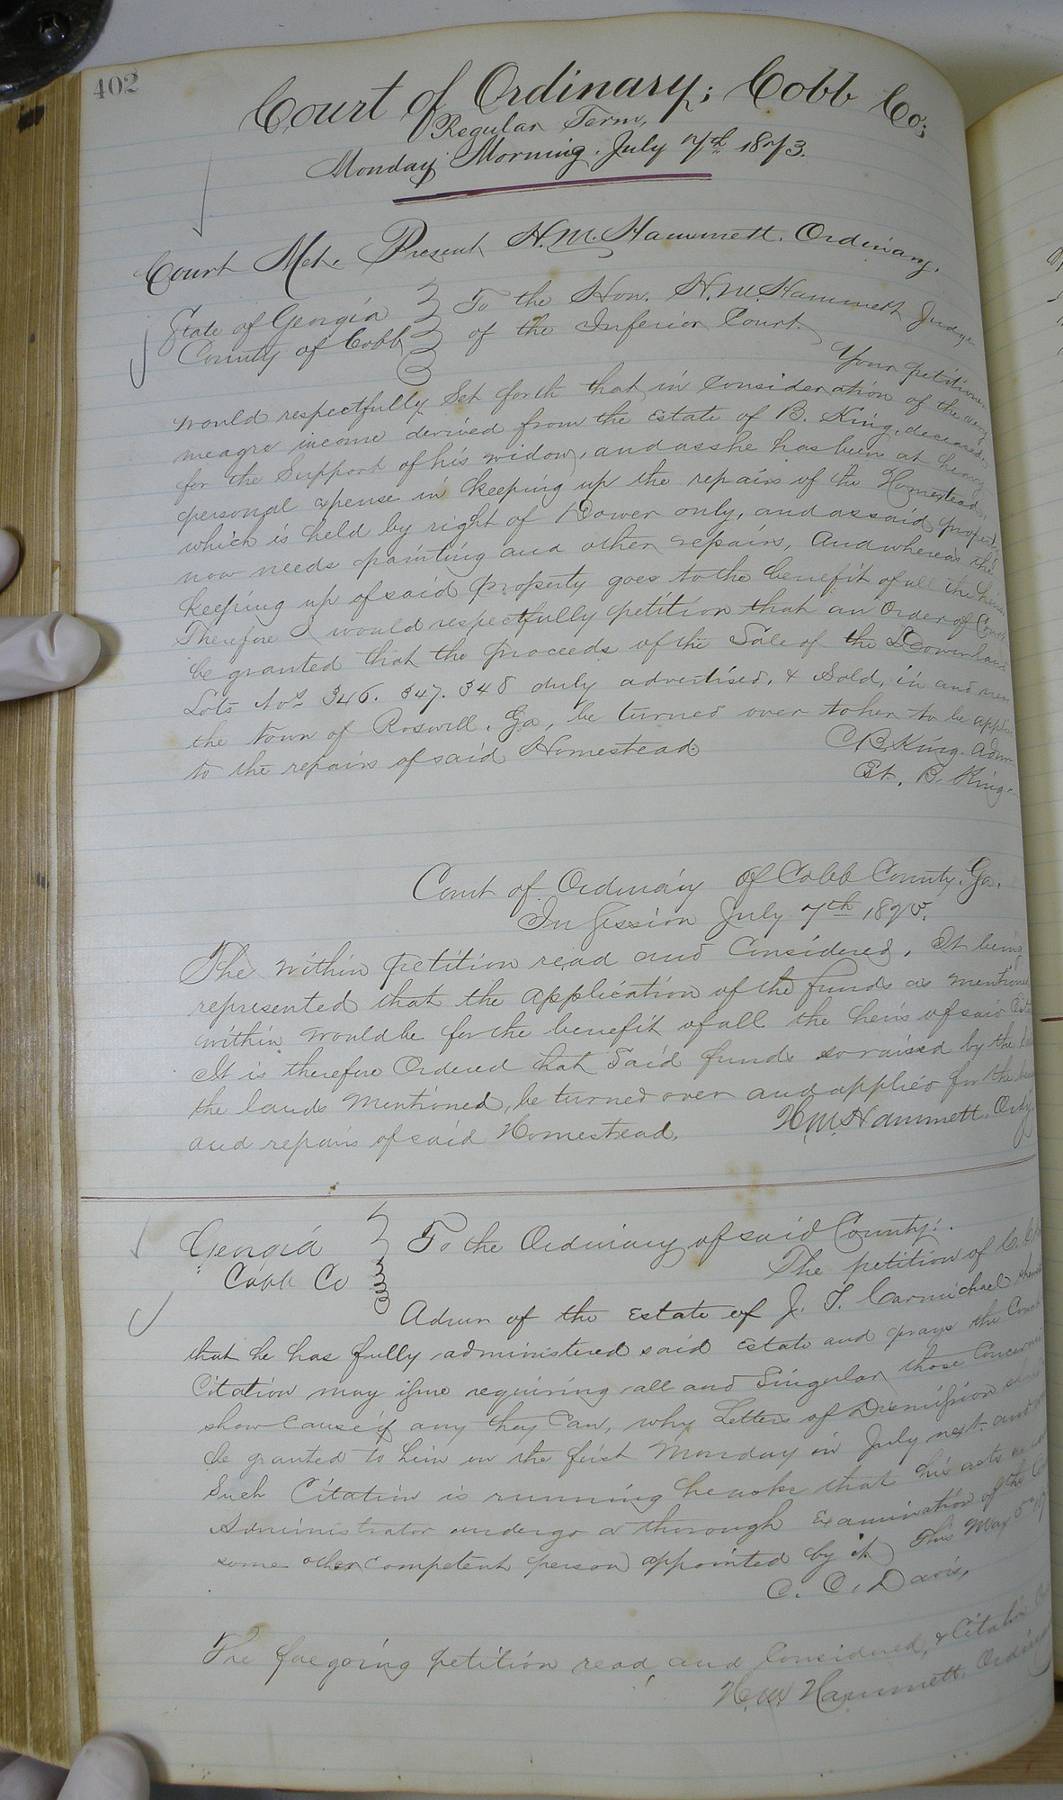 402
Court of Ordinary; Cobb Co;
Regular Term,
Monday Morning July 7th 1873.
Court Met. Present H.M. Hammett. Ordinary.
State of Georgia To the Hon. H.M. Hammett Judge
County of Cobb of the Inferior Court.
Your petitioner
would respectfully Set forth that in consideration of the very
meagre income derived from the Estate of B. King, deceased,
for the Support of his widow, and as she has been at heavy
personal expense in keeping up the repairs of the Homestead,
which is held by right of Dower only, and as said property
now needs painting and other repairs, And whereas the
keeping up of said property goes to the benefit of all the heirs
Therefore I would respectfully petition that an Order of Court
be granted that the proceeds of the Sale of the
Lots Nos 346. 347. 348 duly advertised, & Sold, in and near
the town of Roswell, Ga, be turned over to her to be
to the repairs of said Homestead. C B King. Admr
Est. B. King.
Court of Ordinary of Cobb County. Ga.
In Session July 7th
The within petition read and Considered, It being
represented that the application of the funds as mentioned
within would be for the benefit of all the heirs of said
It is therefore Ordered that Said funds so raised by the
the lands mentioned, be turned over and applied for the
and repairs of said Homestead. H.M. Hammett. Ordy
Georgia To the Ordinary of said County.
Cobb Co The petition of C.
Admr of the Estate of J. T. Carmichael
that he has fully administered said Estate and prays the Court
Citation may issue requiring all and Singular those Concerned
show cause if any they Can, why Letters of Dismission
be granted to him on the first Monday in July next and
Such Citation is running he asks that his acts as
Administrator undergo a thorough Examination of the
some other competent person appointed by it This May 5th
C. C. Davis,
The foregoing petition read and Considered, & Citation
H.M. Hammett, Ordinary